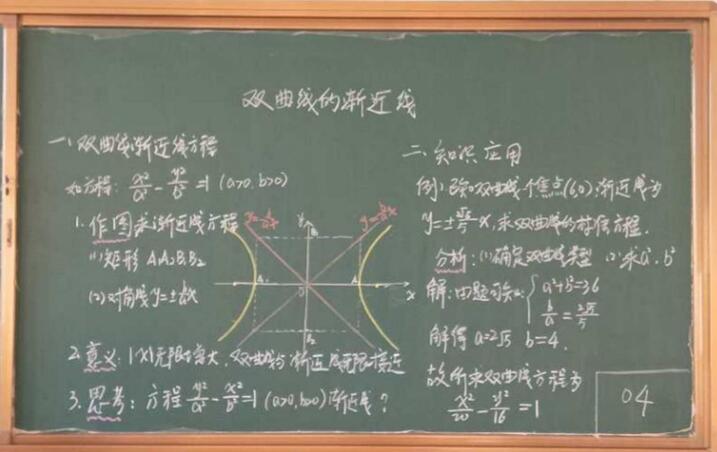 双曲线的渐近线
一、双曲线渐近线方程
如方程: x²/a² - y²/b² = 1 (a>0, b>0)
1. 作图求渐近线方程
(1) 矩形 A₁A₂B₁B₂
(2) 对角线 y=±b/a x
y=-b/a x
y=b/a x
y
x
O
2. 意义: |x|无限增大, 双曲线与渐近线无限接近
3. 思考: 方程 y²/a² - x²/b² = 1 (a>0, b>0) 渐近线?
二、知识应用
例1: 双曲线个焦点(6,0), 渐近线为
y=±2√5/5 x, 求双曲线的标准方程.
分析: (1) 确定双曲线类型 (2) 求a², b²
解: 由题可知: { a²+b²=36
b/a = 2√5/5
解得 a=2√5 b=4.
故所求双曲线方程为
x²/20 - y²/16 = 1
04